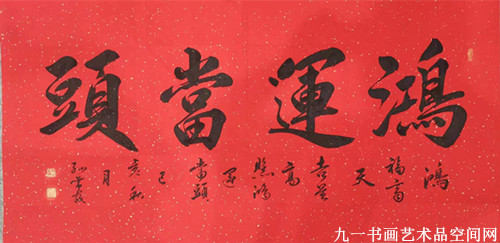 鴻運當頭
鴻
福齊
天
吉星
高
照鴻
運
當頭
己
亥秋
月
九一书画艺术品空间网